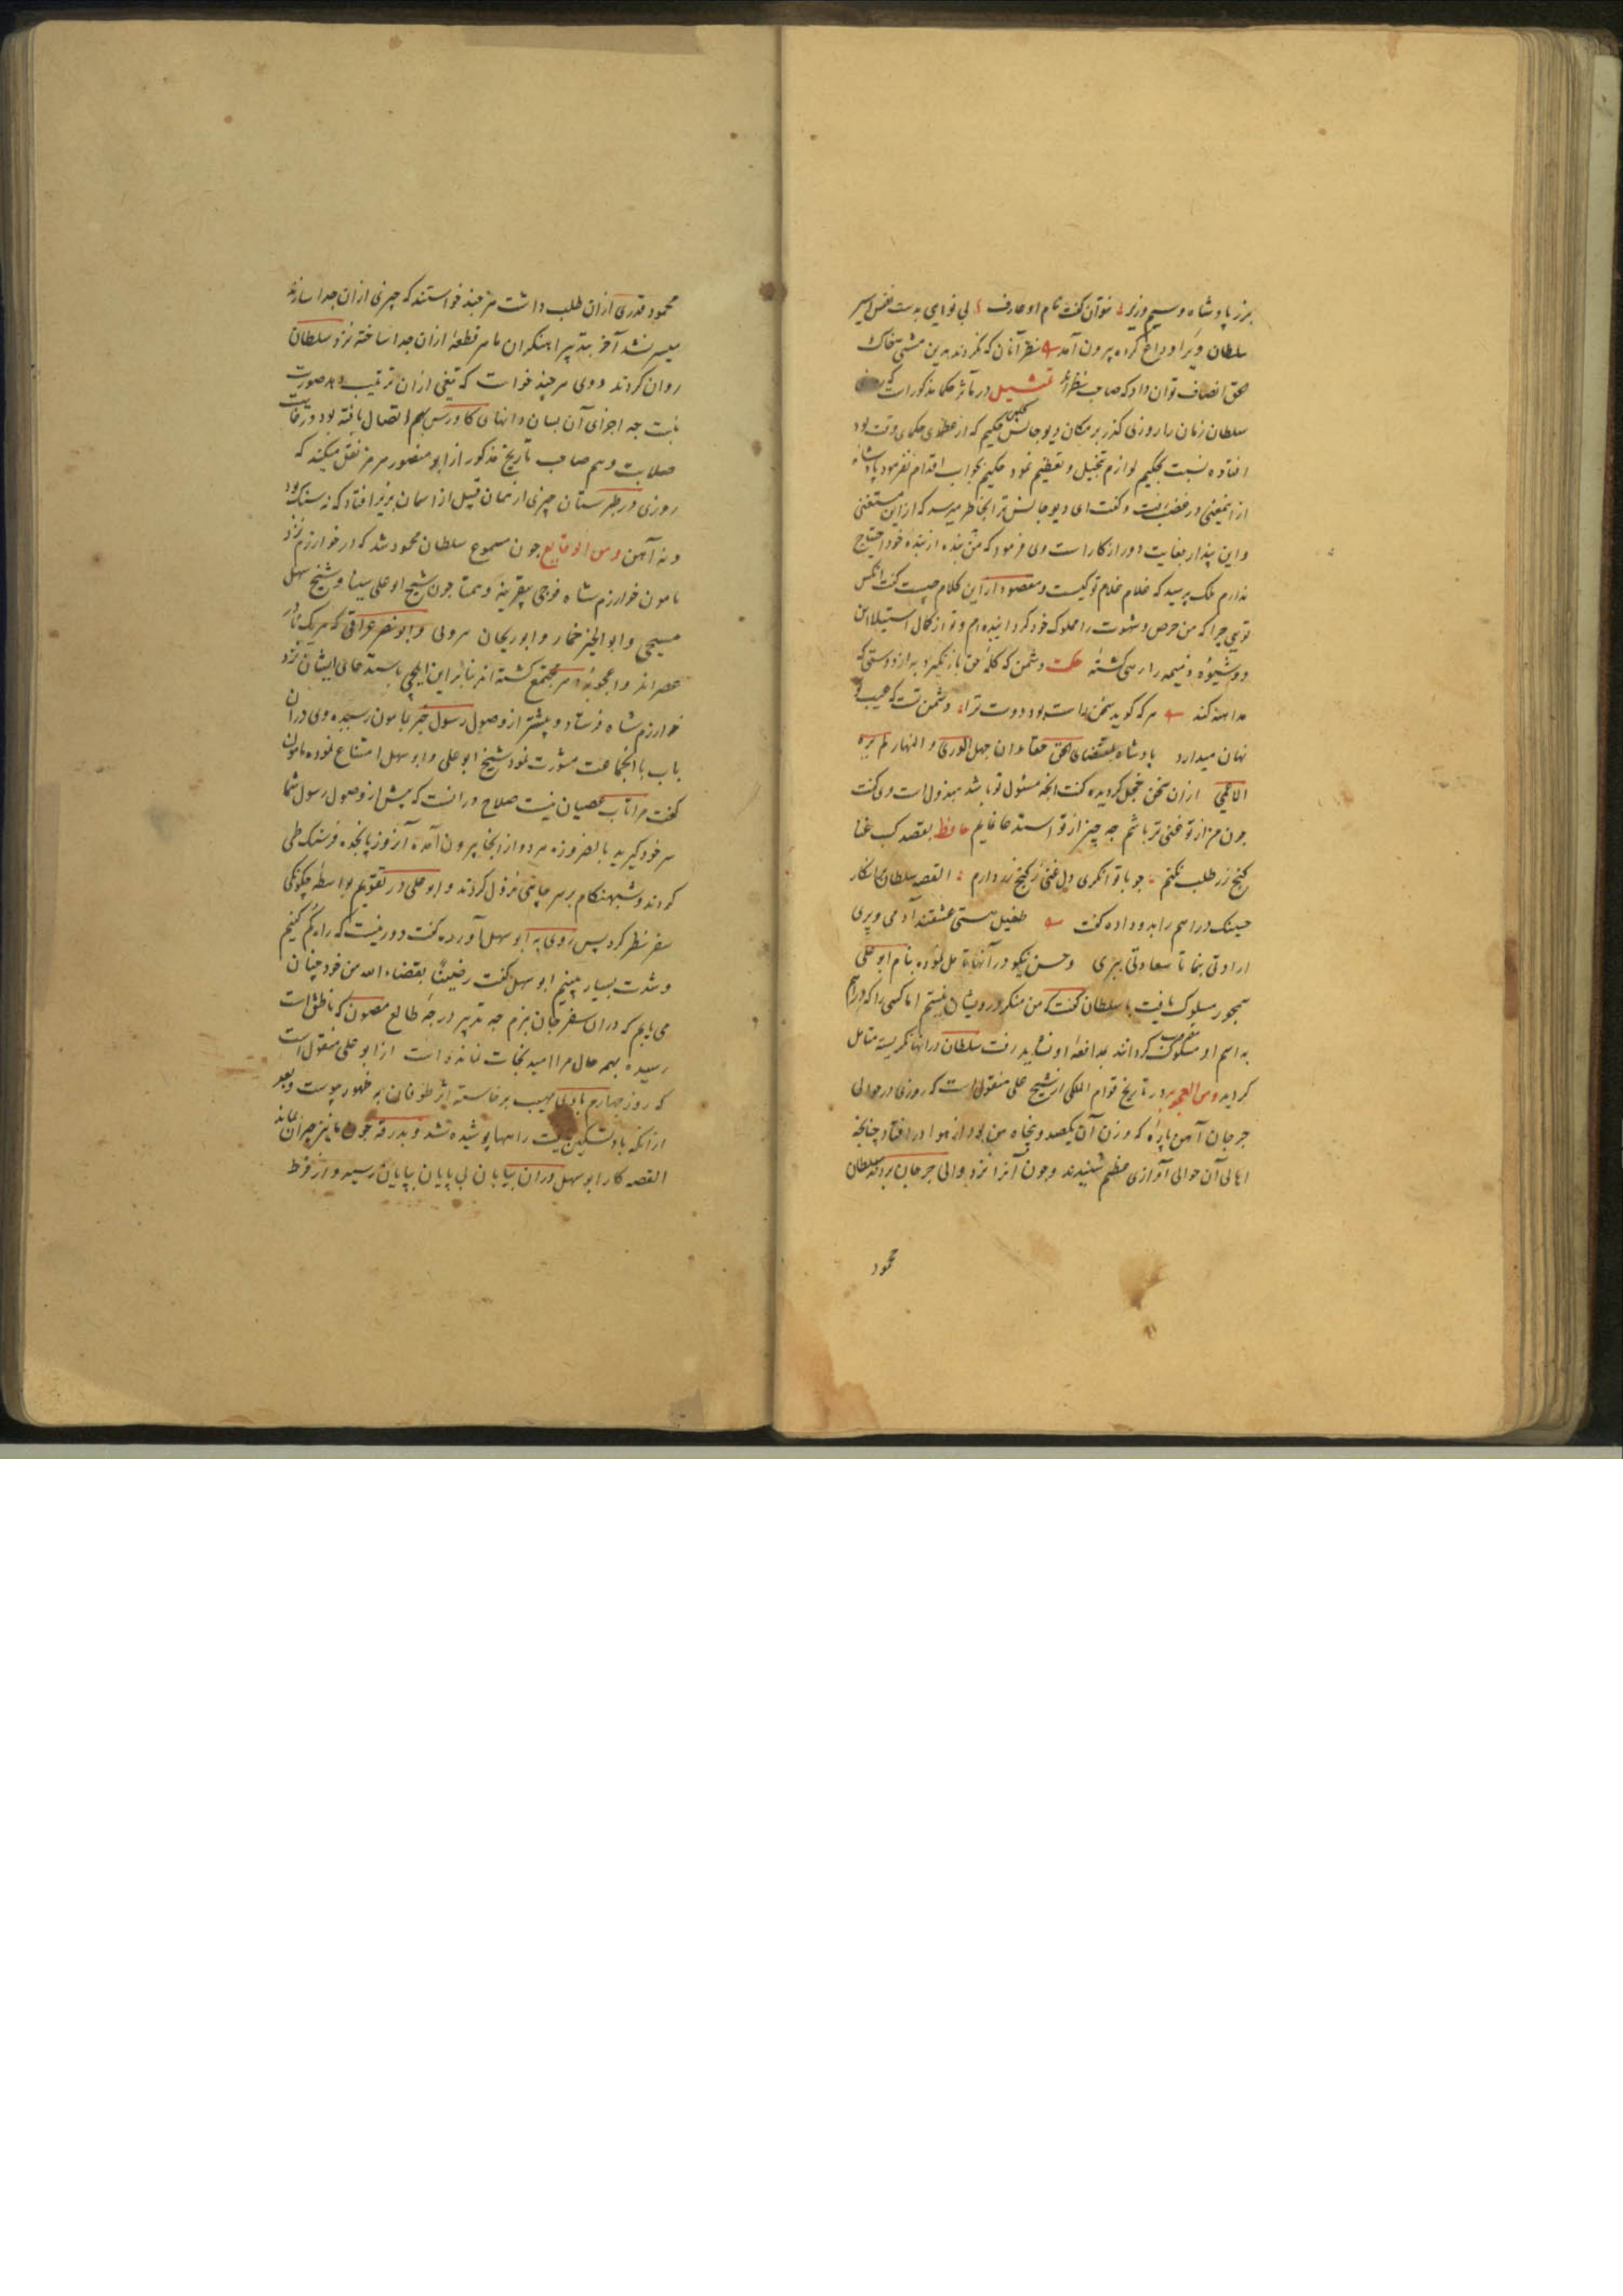 بزر پادشاه و سیم وزیر نتوان گفت نام او عارف بی نوایی بدست نفس اسیر
سلطان ویرا وداع کرده بیرون آمد نظر آنان که نکردند بدین مشتی خاک
حق انصاف توان داد که صاحب نظرند تمثیل در مآثر حکما مذکور است که
سلطان زمان را روزی گذر بر مکان دیوجانس کلبی حکیم که از عظمای حکمای وقت بود
افتاده نسبت بحکیم لوازم تبجیل و تعظیم نمود حکیم بجواب اقدام نفرمود پادشاه
ازین معنی در غضب و گفت ای دیوجانس ترا بخاطر میرسد که از این مستغنی
و این پندار بغایت دور از کار است وی فرمود که من بنده از بنده خود احتیاج
ندارم ملک پرسید که غلام غلام تو کیست و مقصود از این کلام چیست گفت آنکس
تویی چرا که من حرص و شهوت را مملوک خود گردانیده‌ام و تو از کمال استیلا این
دو شیوه ذمیمه را رهی گشته حکمت دشمن که کلمه حق باز نگیرد به از دوستی که
مداهنه کند هر که گوید سخن راست بود دوست ترا دشمن تست که عیب تو
نهان میدارد پادشاه بمقتضای الحق الوری و النهار لم یره
الا عمی از آن سخن خجل گردیده گفت آنچه مسئول تو باشد مبذول است وی گفت
چون من از تو غنی تر باشم چه چیز از تو استدعا نمایم حافظ بقصد کسب غنا
گنج زر طلب نکنم چو با توانگری دل غنی ز گنج زر دارم القصه سلطان
درا هم را بدو داده گفت طفیل هستی عشقند آدمی و پری
ارادتی بنما تا سعادتی ببری وحسن نیکو در آنها تامل نموده بنام ابو علی
سیمجور مسلوک یافت با سلطان گفت که من منکر درویشان نیستم اما کسی را که دراهم
به اسم او مسکوک گردانند مدافعه او نشاید رفت سلطان در آنها نگریسته متامل
گردید ومن العجب در تاریخ قوام الملکی از شیخ علی منقول است که روزی در حوالی
جرجان آهن پاره که وزن آن یکصد و پنجاه من بود از هوا در افتاد چنانچه
اهالی آن حوالی آوازی عظیم شنیدند و چون آنرا نزد والی جرجان بردند سلطان
محمود
محمود قدری از آن طلب داشت هر چند خواستند که چیزی از آن جدا سازند
میسر نشد آخر بتدبیر آهنگران ماهر قطعه از آن جدا ساخته نزد سلطان
روان کردند و وی هر چند خواست که تیغی از آن ترتیب دهد صورت
نبست چه اجزای آن بسان دانهای کاورس بهم اتصال یافته بود در غایت
صلابت و هم صاحب تاریخ مذکور از ابو منصور هرمز نقل میکند که
روزی در طبرستان چیزی از همان قبیل از آسمان بزیر افتاد که نه سنگ بود
و نه آهن ومن الوقایع چون مسموع سلطان محمود شد که در خوارزم نزد
مامون خوارزم شاه فوجی بیقرینه و همتا چون شیخ ابو علی سینا و شیخ سهل
مسیحی و ابو الخیر خمار و ابو ریحان هروی و ابو نصر عراقی که هر یک نادر
عصر اند و اعجوبه دهر مجتمع گشته‌اند بنا بر این ایلچی باستدعای ایشان نزد
خوارزم شاه فرستاد و پیشتر از وصول رسول خبر بمامون رسیده وی در آن
باب با آنجماعت مشورت نمود شیخ ابو علی و ابو سهل امتناع نموده مامون
گفت مرا تاب عصیان نیست صلاح در آنست که پیش از وصول رسول شما
سر خود گیرید بالضروره هر دو از آنجا بیرون آمده آنروز پانجده فرسنگ طی
کردند و شبهنگام بر سر چاهی نزول کردند و ابو علی در تقویم بواسطه چگونگی
سفر نظر کرد پس روی به ابو سهل آورده گفت دور نیست که راه گم کنیم
و شدت بسیار بینیم ابو سهل گفت رضینا بقضاء الله من خود چنان
می یابم که در آن سفر جان نبرم چه تدبیر درجه طالع که ناطق است
رسیده بهمه حال مرا امید نجات نمانده است از ابو علی منقول است
که روز چهارم بادی مهیب برخاسته اثر طوفان به ظهور پیوست و بعد
از آنکه باد تسکین یافت راهها پوشیده شد و بدرقه چون ما نیز حیران بماند
القصه کار ابو سهل در آن بیابان بی پایان بپایان رسید و از فرط